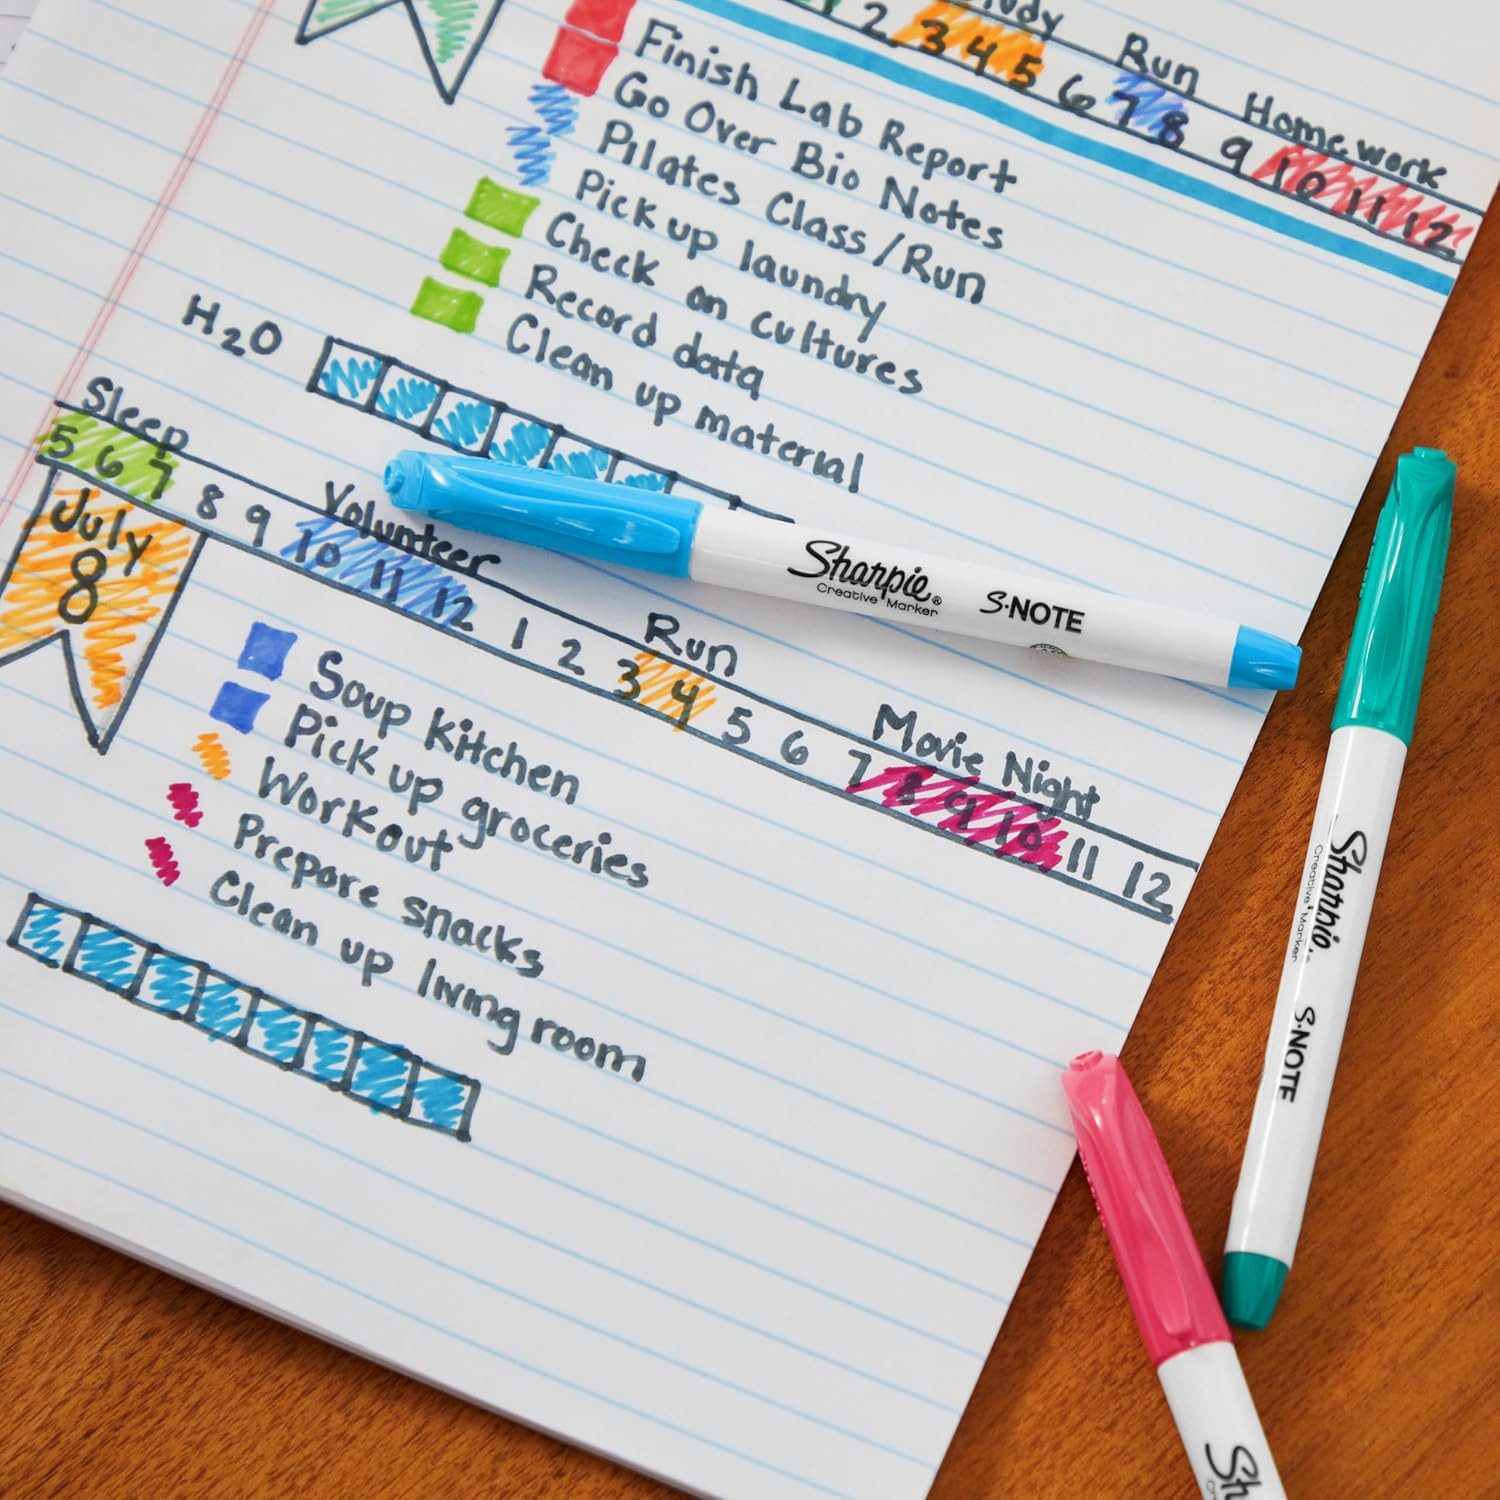 2 3 4 5 6 7 8 9 10 11 12
Run
Homework
Finish Lab Report
Go Over Bio Notes
Pilates Class/Run
Pick up laundry
Check on cultures
Record data
Clean up material
H2O
Sleep
Volunteer
Run
Movie Night
5 6 7 8 9 10 11 12 1 2 3 4 5 6 7 8 9 10 11 12
July
8
Soup Kitchen
Pick up groceries
Workout
Prepare snacks
Clean up living room
Sharpie®
Creative Marker
S·NOTE
Sharpie®
Creative Marker
S·NOTE